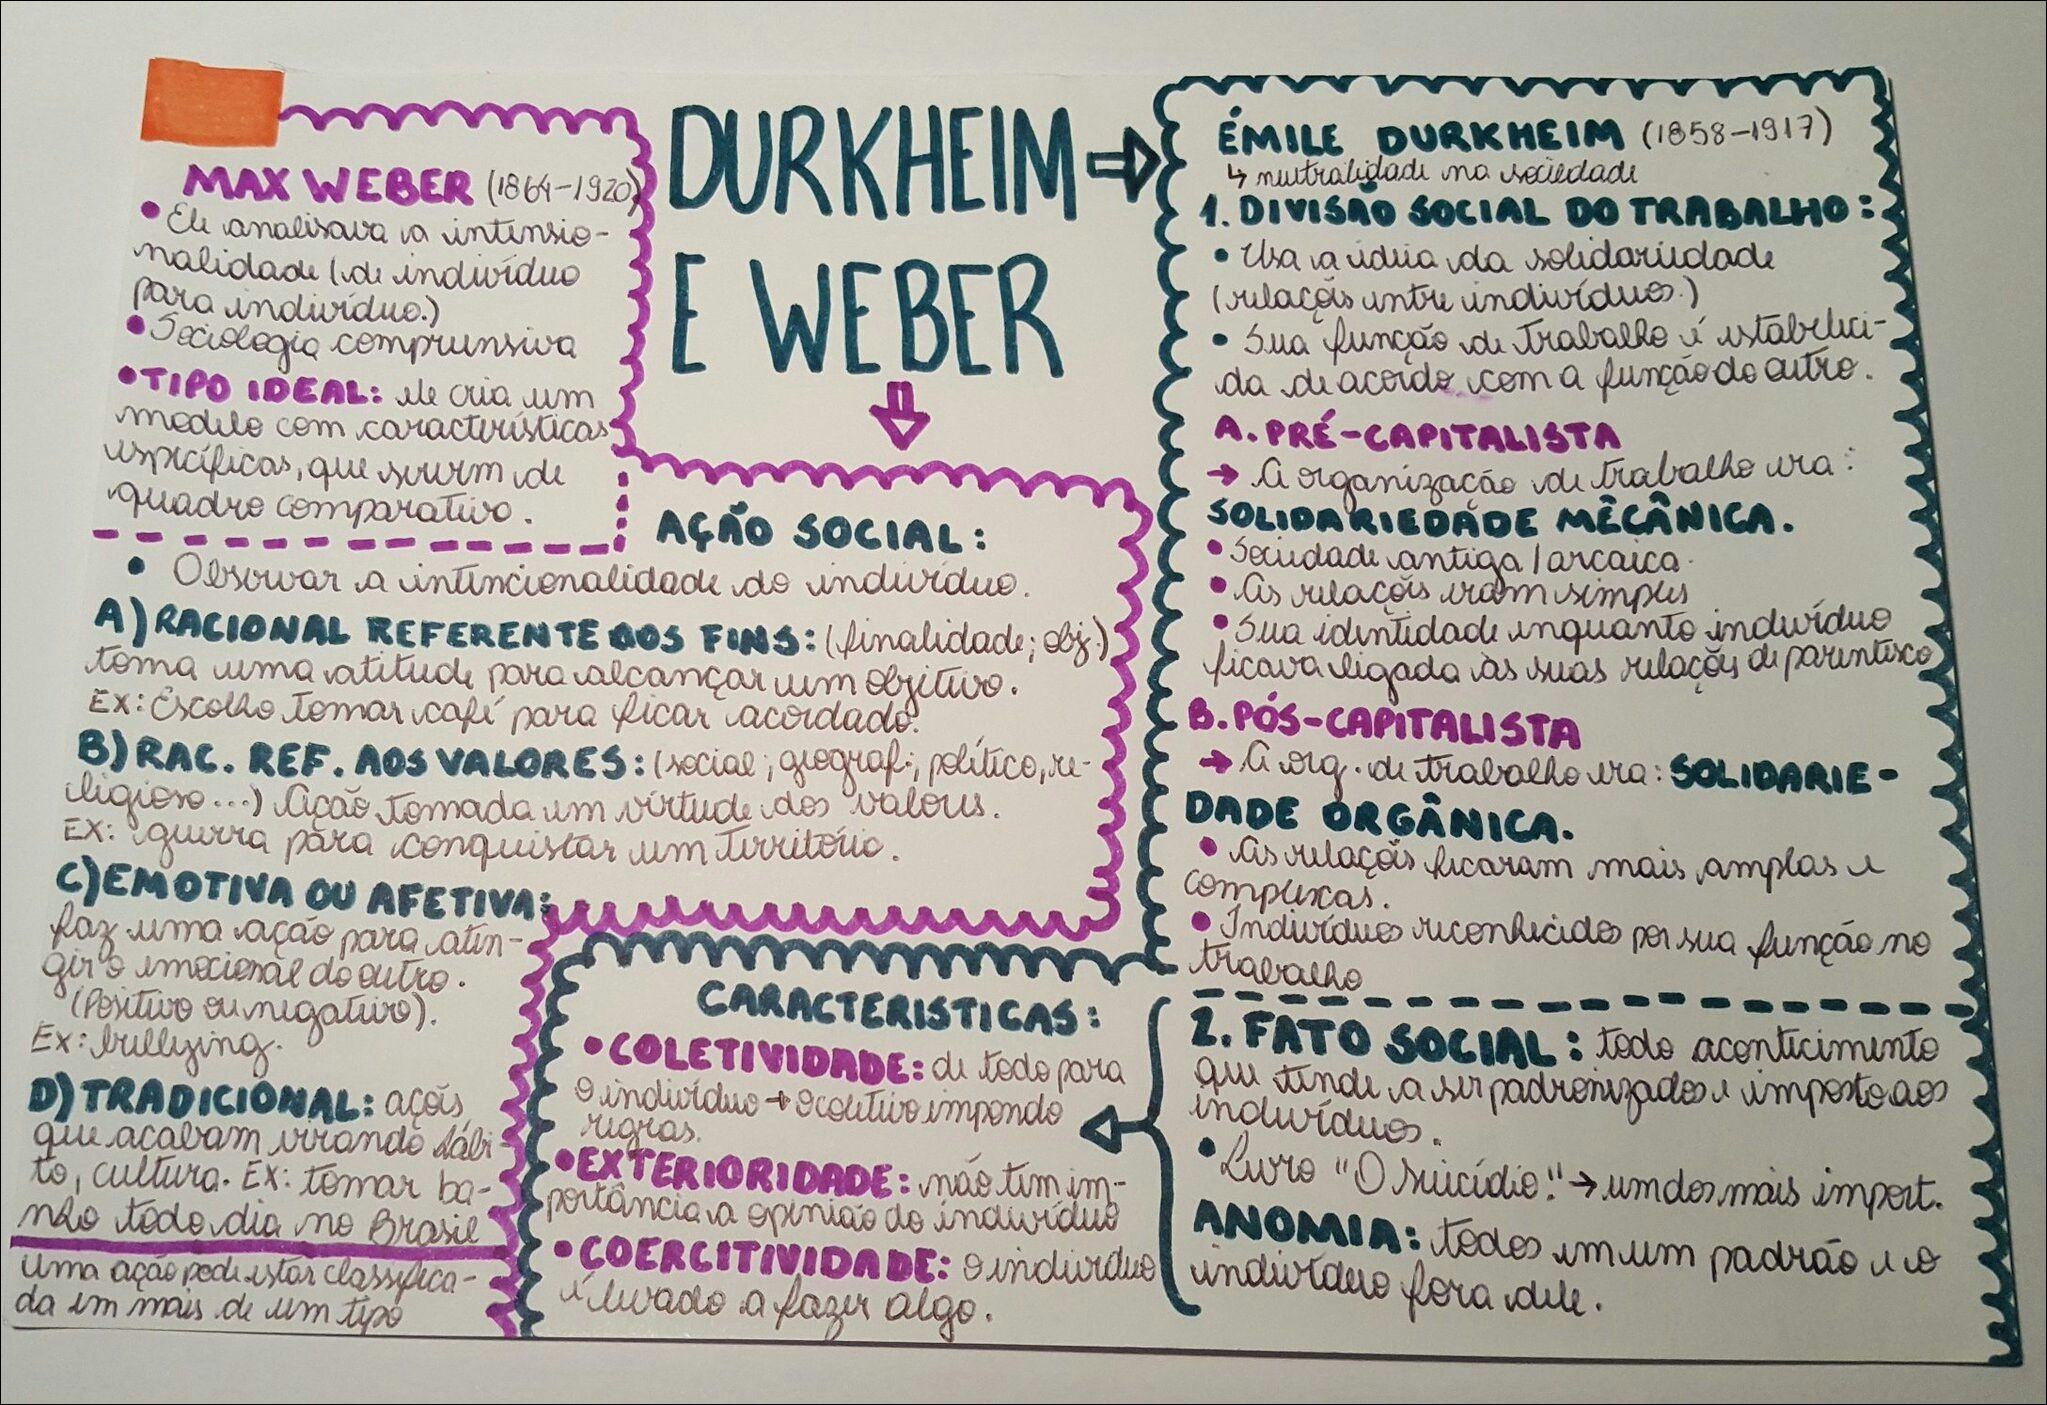 DURKHEIM
E WEBER
MAX WEBER (1864-1920)
• Ele analisava a intensio-
nalidade (de indivíduo
para indivíduo.)
• Sociologia compreensiva
• TIPO IDEAL: ele cria um
modelo com características
específicas, que servem de
quadro comparativo.
AÇÃO SOCIAL:
• Observar a intencionalidade do indivíduo.
A) RACIONAL REFERENTE AOS FINS: (finalidade; obj.)
toma uma atitude para alcançar um objetivo.
EX: Escolho tomar café para ficar acordado.
B) RAC. REF. AOS VALORES: (social; geograf.; político, re-
ligioso...) Ação tomada em virtude dos valores.
EX: guerra para conquistar um território.
C) EMOTIVA OU AFETIVA:
faz uma ação para aten-
gir o emocional do outro.
(Positivo ou negativo).
Ex: bullying.
D) TRADICIONAL: ações
que acabam virando hábi-
to, cultura. EX: tomar ba-
nho todo dia no Brasil
uma ação pode estar classifica-
da em mais de um tipo
ÉMILE DURKHEIM (1858-1917)
↳ neutralidade na sociedade
1. DIVISÃO SOCIAL DO TRABALHO:
• Usa a ideia da solidariedade
(relações entre indivíduos.)
• Sua função de trabalho é estabeleci-
da de acordo com a função do outro.
A. PRÉ-CAPITALISTA
→ A organização de trabalho era:
SOLIDARIEDADE MÊCÂNICA.
• Sociedade antiga/arcaica.
• As relações eram simples
• Sua identidade enquanto indivíduo
ficava ligada às suas relações de parentesco
B. PÓS-CAPITALISTA
→ A org. de trabalho era: SOLIDARIE-
DADE ORGÂNICA.
• As relações ficaram mais amplas e
complexas.
• Indivíduos reconhecidos por sua função no
trabalho
2. FATO SOCIAL: todo acontecimento
que tende a ser padronizados e imposto aos
indivíduos.
• Livro "O suicídio." → um dos mais import.
ANOMIA: todos em um padrão e o
indivíduo fora dele.
CARACTERISTICAS:
• COLETIVIDADE: de todo para
o indivíduo → o coletivo impondo
regras.
• EXTERIORIDADE: não tem im-
portância a opinião do indivíduo
• COERCITIVIDADE: o indivíduo
é levado a fazer algo.